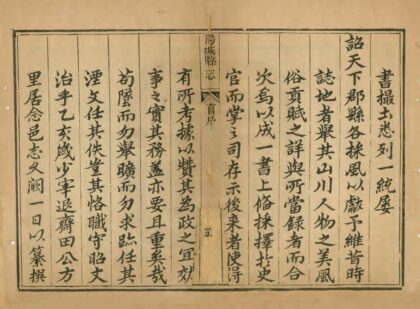 書撮土悉列一統屡
詔天下郡縣各採風以獻予維昔時
誌地者舉其山川人物之美風
俗貢賦之詳與所當録者而合
次焉以成一書上俻採擇於史
官而掌之司存示後来者使得
陽城縣志
首序
有所考據以賛其為政之宜效
事之實其務蓋亦要且重矣哉
苟墜而勿舉曠而勿求任其
湮文任其佚豈其恪職守昭文
治乎乙亥歲少宰退齋田公方
里居念邑志久闕一日以纂撰